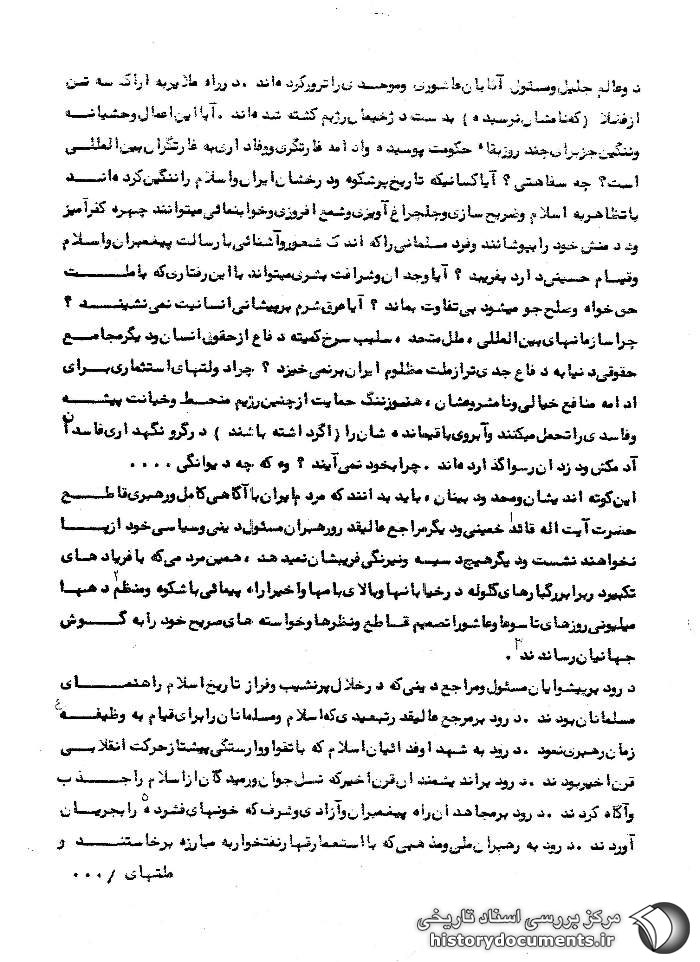 دو عالم جلیل و مسئول آقایان عاشوری و موحدی را ترور کرده‌اند . در راه ملایر به اراک سه تن
از فضلا ( که نامشان نرسیده ) بدست دژخیمان رژیم کشته شده‌اند . آیا این اعمال وحشیانه
و ننگین جز برای چند روز بقاء حکومت پوسیده و ادامه غارتگری و وفاداری به غارتگران بین‌المللی
است ؟ چه سفاهتی ؟ آیا کسانیکه تاریخ پرشکوه و درخشان ایران و اسلام را ننگین کرده‌اند
با تظاهر به اسلام و ضریح سازی و چلچراغ آویزی و شمع افروزی و خوابنمائی میتوانند چهره کفرآمیز
و دد منش خود را بپوشانند و فرد مسلمانی را که اندک شعور و آشنائی با رسالت پیغمبران و اسلام
و قیام حسینی دارد بفریبد ؟ آیا وجدان و شرافت بشری میتواند با این رفتاری که با ملت
حق خواه و صلح جو میشود بی‌تفاوت بماند ؟ آیا عرق شرم بر پیشانی انسانیت نمی‌نشیند ؟
چرا سازمانهای بین‌المللی ، ملل متحد ، صلیب سرخ کمیته دفاع از حقوق انسان و دیگر مجامع
حقوقی دنیا به دفاع جدی‌تر از ملت مظلوم ایران برنمی‌خیزد ؟ چرا دولتهای استثماری برای
ادامه منافع خیالی و نامشروعشان ، هنوز ننگ حمایت از چنین رژیم منحط و خیانت پیشه
و فاسدی را تحمل میکنند و آبروی باقیمانده شان را ( اگر داشته باشند ) در گرو نگهداری فاسدان
آدمکش و دزدان رسوا گذارده‌اند . چرا بخود نمی‌آیند ؟ وه که چه دیوانگی ....
این کوته اندیشان و محدود بینان ، باید بدانند که مردم ایران با آگاهی کامل و رهبری قاطع
حضرت آیت اله قائد۱ خمینی و دیگر مراجع عالیقدر و رهبران مسئول دینی و سیاسی خود از پا
نخواهند نشست و دیگر هیچ دسیسه و نیرنگی فریبشان نمیدهد ، همین مردمی که با فریادهای
تکبیر در برابر رگبارهای گلوله در خیابانها و بالای بامها و اخیرا راه پیمائی باشکوه و منظم۲ دهها
میلیونی روزهای تاسوعا و عاشورا تصمیم قاطع و نظرها و خواسته های صریح خود را به گوش
جهانیان رساندند۳ .
درود بر پیشوایان مسئول و مراجع دینی که در خلال پرنشیب و فراز تاریخ اسلام راهنمای
مسلمانان بودند . درود بر مرجع عالیقدر تبعیدی که اسلام و مسلمانان را برای قیام به وظیفه۴
زمان رهبری نمود . درود به شهدا و فدائیان اسلام که با تقوا و وارستگی پیشتاز حرکت انقلابی
قرن اخیر بودند . درود بر اندیشمندان قرن اخیر که نسل جوان و رمیدگان از اسلام را جذب
و آگاه کردند . درود بر مجاهدان راه پیغمبران و آزادی و شرف که خونهای فشرده۵ را بجریان
آوردند . درود به رهبران ملی و مذهبی که با استعمارقهار نفتخوار به مبارزه برخاستند و
ملتهای /۰۰۰
مرکز بررسی اسناد تاریخی
historydocuments.ir